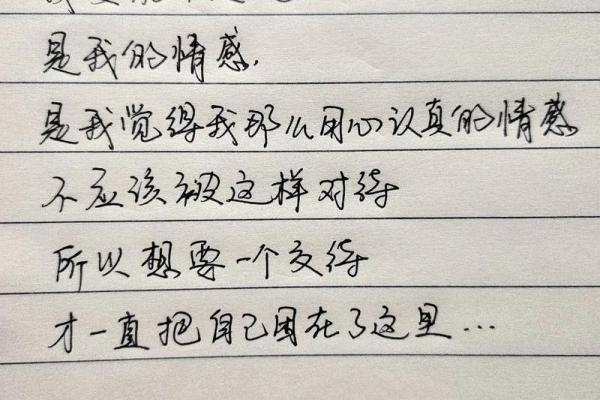 是我的情感.
是我觉得我那么用心认真的情感
不应该被这样对待
所以想要一个交待
才一直把自己困在了这里...